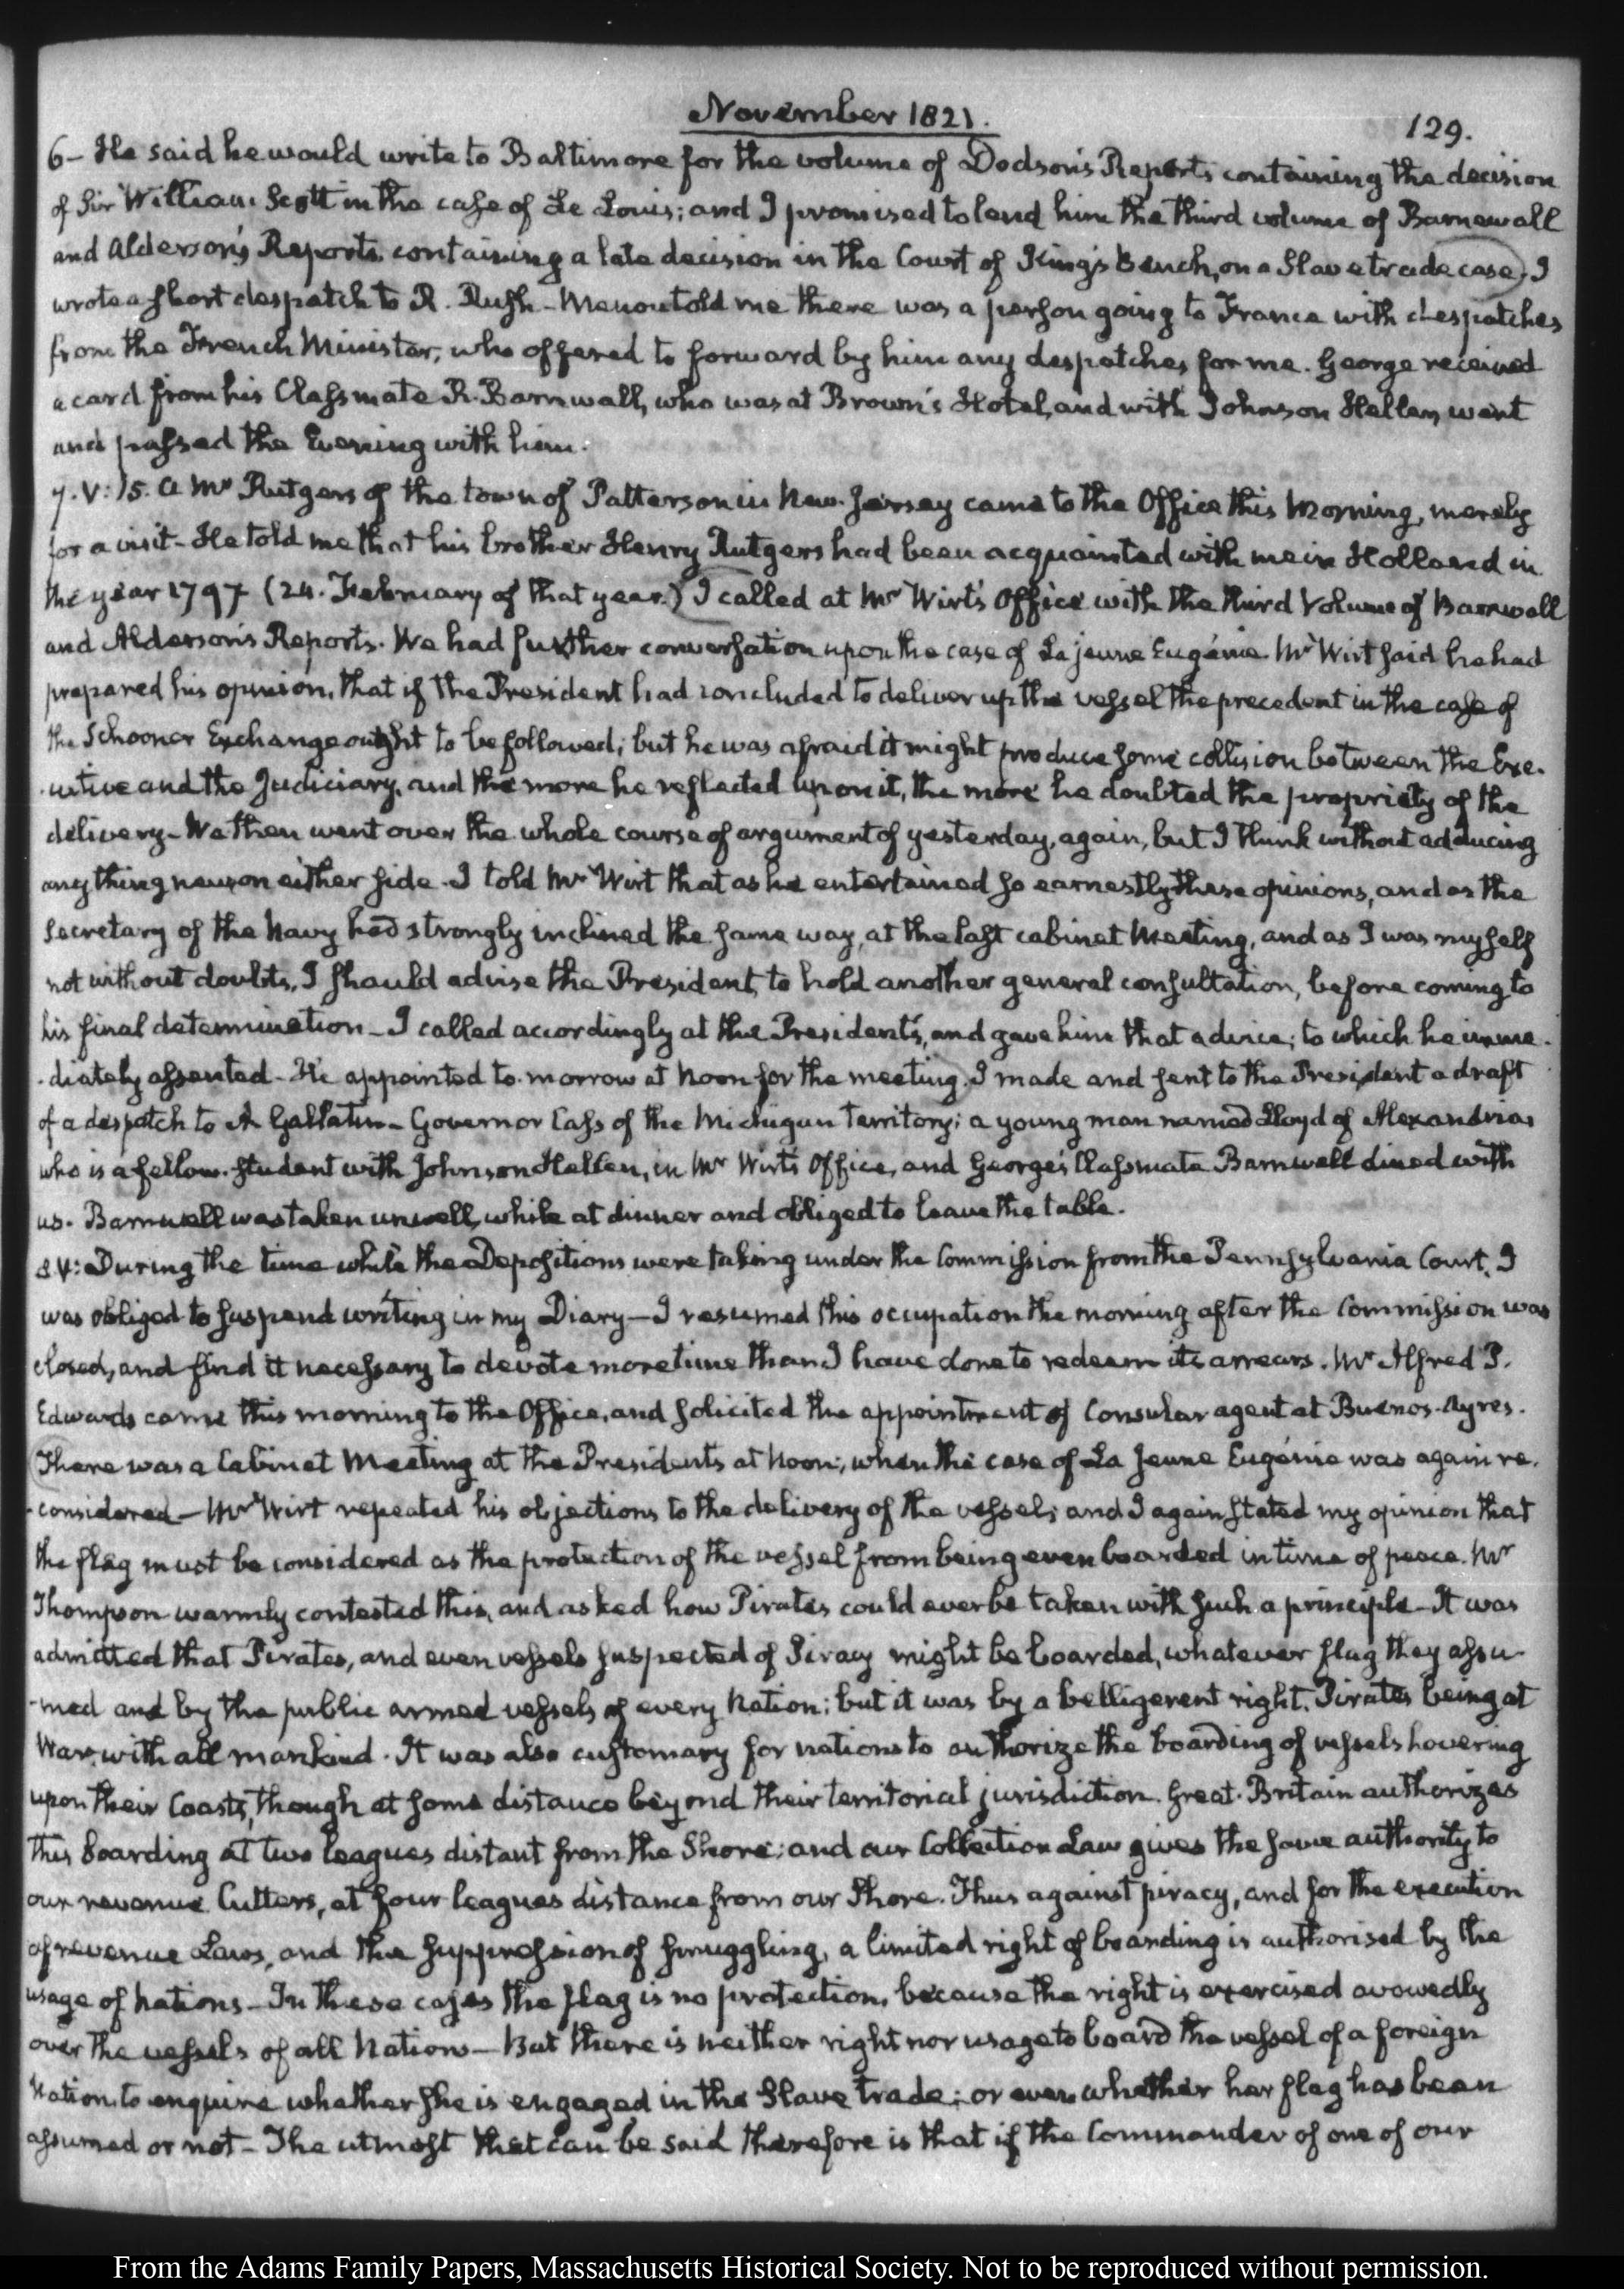 November 1821.
129.
6- He said he would write to Baltimore for the volume of Dodson's Reports containing the decision
of Sir William Scott in the case of Le Louis; and I promised to lend him the third volume of Barnewall
and Alderson's Reports, containing a late decision in the Court of King's Bench, on a Slave trade case. I
wrote a short despatch to R. Rush - Menou told me there was a person going to France with despatches
from the French Minister, who offered to forward by him any despatches for me. George received
a card from his Classmate R. Barnwall, who was at Brown's Hotel, and with Johnson Hellen, went
and passed the Evening with him.
7. V: 15. A Mr Rutgers of the town of Patterson in New-Jersey came to the Office this Morning, merely
for a visit - He told me that his brother Henry Rutgers had been acquainted with me in Holland in
the year 1797 (24. February of that year.) I called at Mr Wirt's Office with the third Volume of Barnwell
and Alderson's Reports. We had further conversation upon the case of La jeune Eugénie. Mr Wirt said he had
prepared his opinion, that if the President had concluded to deliver up the vessel the precedent in the case of
the Schooner Exchange ought to be followed; but he was afraid it might produce some collision between the Exe-
-cutive and the Judiciary, and the more he reflected upon it, the more he doubted the propriety of the
delivery - We then went over the whole course of argument of yesterday, again, but I think without adducing
any thing new on either side. I told Mr Wirt that as he entertained so earnestly these opinions, and as the
Secretary of the Navy had strongly inclined the same way, at the last cabinet Meeting, and as I was myself
not without doubts, I should advise the President, to hold another general consultation, before coming to
his final determination - I called accordingly at the President's, and gave him that advice; to which he imme-
-diately assented - He appointed to-morrow at Noon for the meeting. I made and sent to the President a draft
of a despatch to A Gallatin - Governor Cass of the Michigan Territory; a young man named Lloyd of Alexandria,
who is a fellow-student with Johnson Hellen, in Mr Wirt's Office, and George's Classmate Barnwell dined with
us. Barnwell was taken unwell, while at dinner and obliged to leave the table.
8. V: During the time while the Depositions were taking under the Commission from the Pennsylvania Court, I
was obliged to suspend writing in my Diary - I resumed this occupation the morning after the Commission was
closed, and find it necessary to devote more time than I have done to redeem its arrears. Mr Alfred P.
Edwards came this morning to the Office, and solicited the appointment of Consular agent at Buenos-Ayres.
There was a Cabinet Meeting at the President's at Noon; when the case of La Jeune Eugénie was again re-
-considered - Mr Wirt repeated his objections to the delivery of the vessel; and I again stated my opinion that
the flag must be considered as the protection of the vessel from being even boarded in time of peace. Mr
Thompson warmly contested this, and asked how Pirates could ever be taken with such a principle - It was
admitted that Pirates, and even vessels suspected of Piracy might be boarded, whatever flag they assu-
-med and by the public armed vessels of every Nation; but it was by a belligerent right, Pirates being at
War with all mankind. It was also customary for nations to authorize the boarding of vessels hovering
upon their Coasts, though at some distance beyond their territorial jurisdiction. Great-Britain authorizes
this boarding at two leagues distant from the Shore; and our Collection Law gives the same authority to
our revenue Cutters, at four leagues distance from our Shore. Thus against piracy, and for the execution
of revenue Laws, and the suppression of smuggling, a limited right of boarding is authorised by the
usage of Nations - In these cases the flag is no protection, because the right is exercised avowedly
over the vessels of all Nations - But there is neither right nor usage to board the vessel of a foreign
Nation to enquire whether she is engaged in the Slave trade; or even whether her flag has been
assumed or not - The utmost that can be said therefore is that if the Commander of one of our
From the Adams Family Papers, Massachusetts Historical Society. Not to be reproduced without permission.